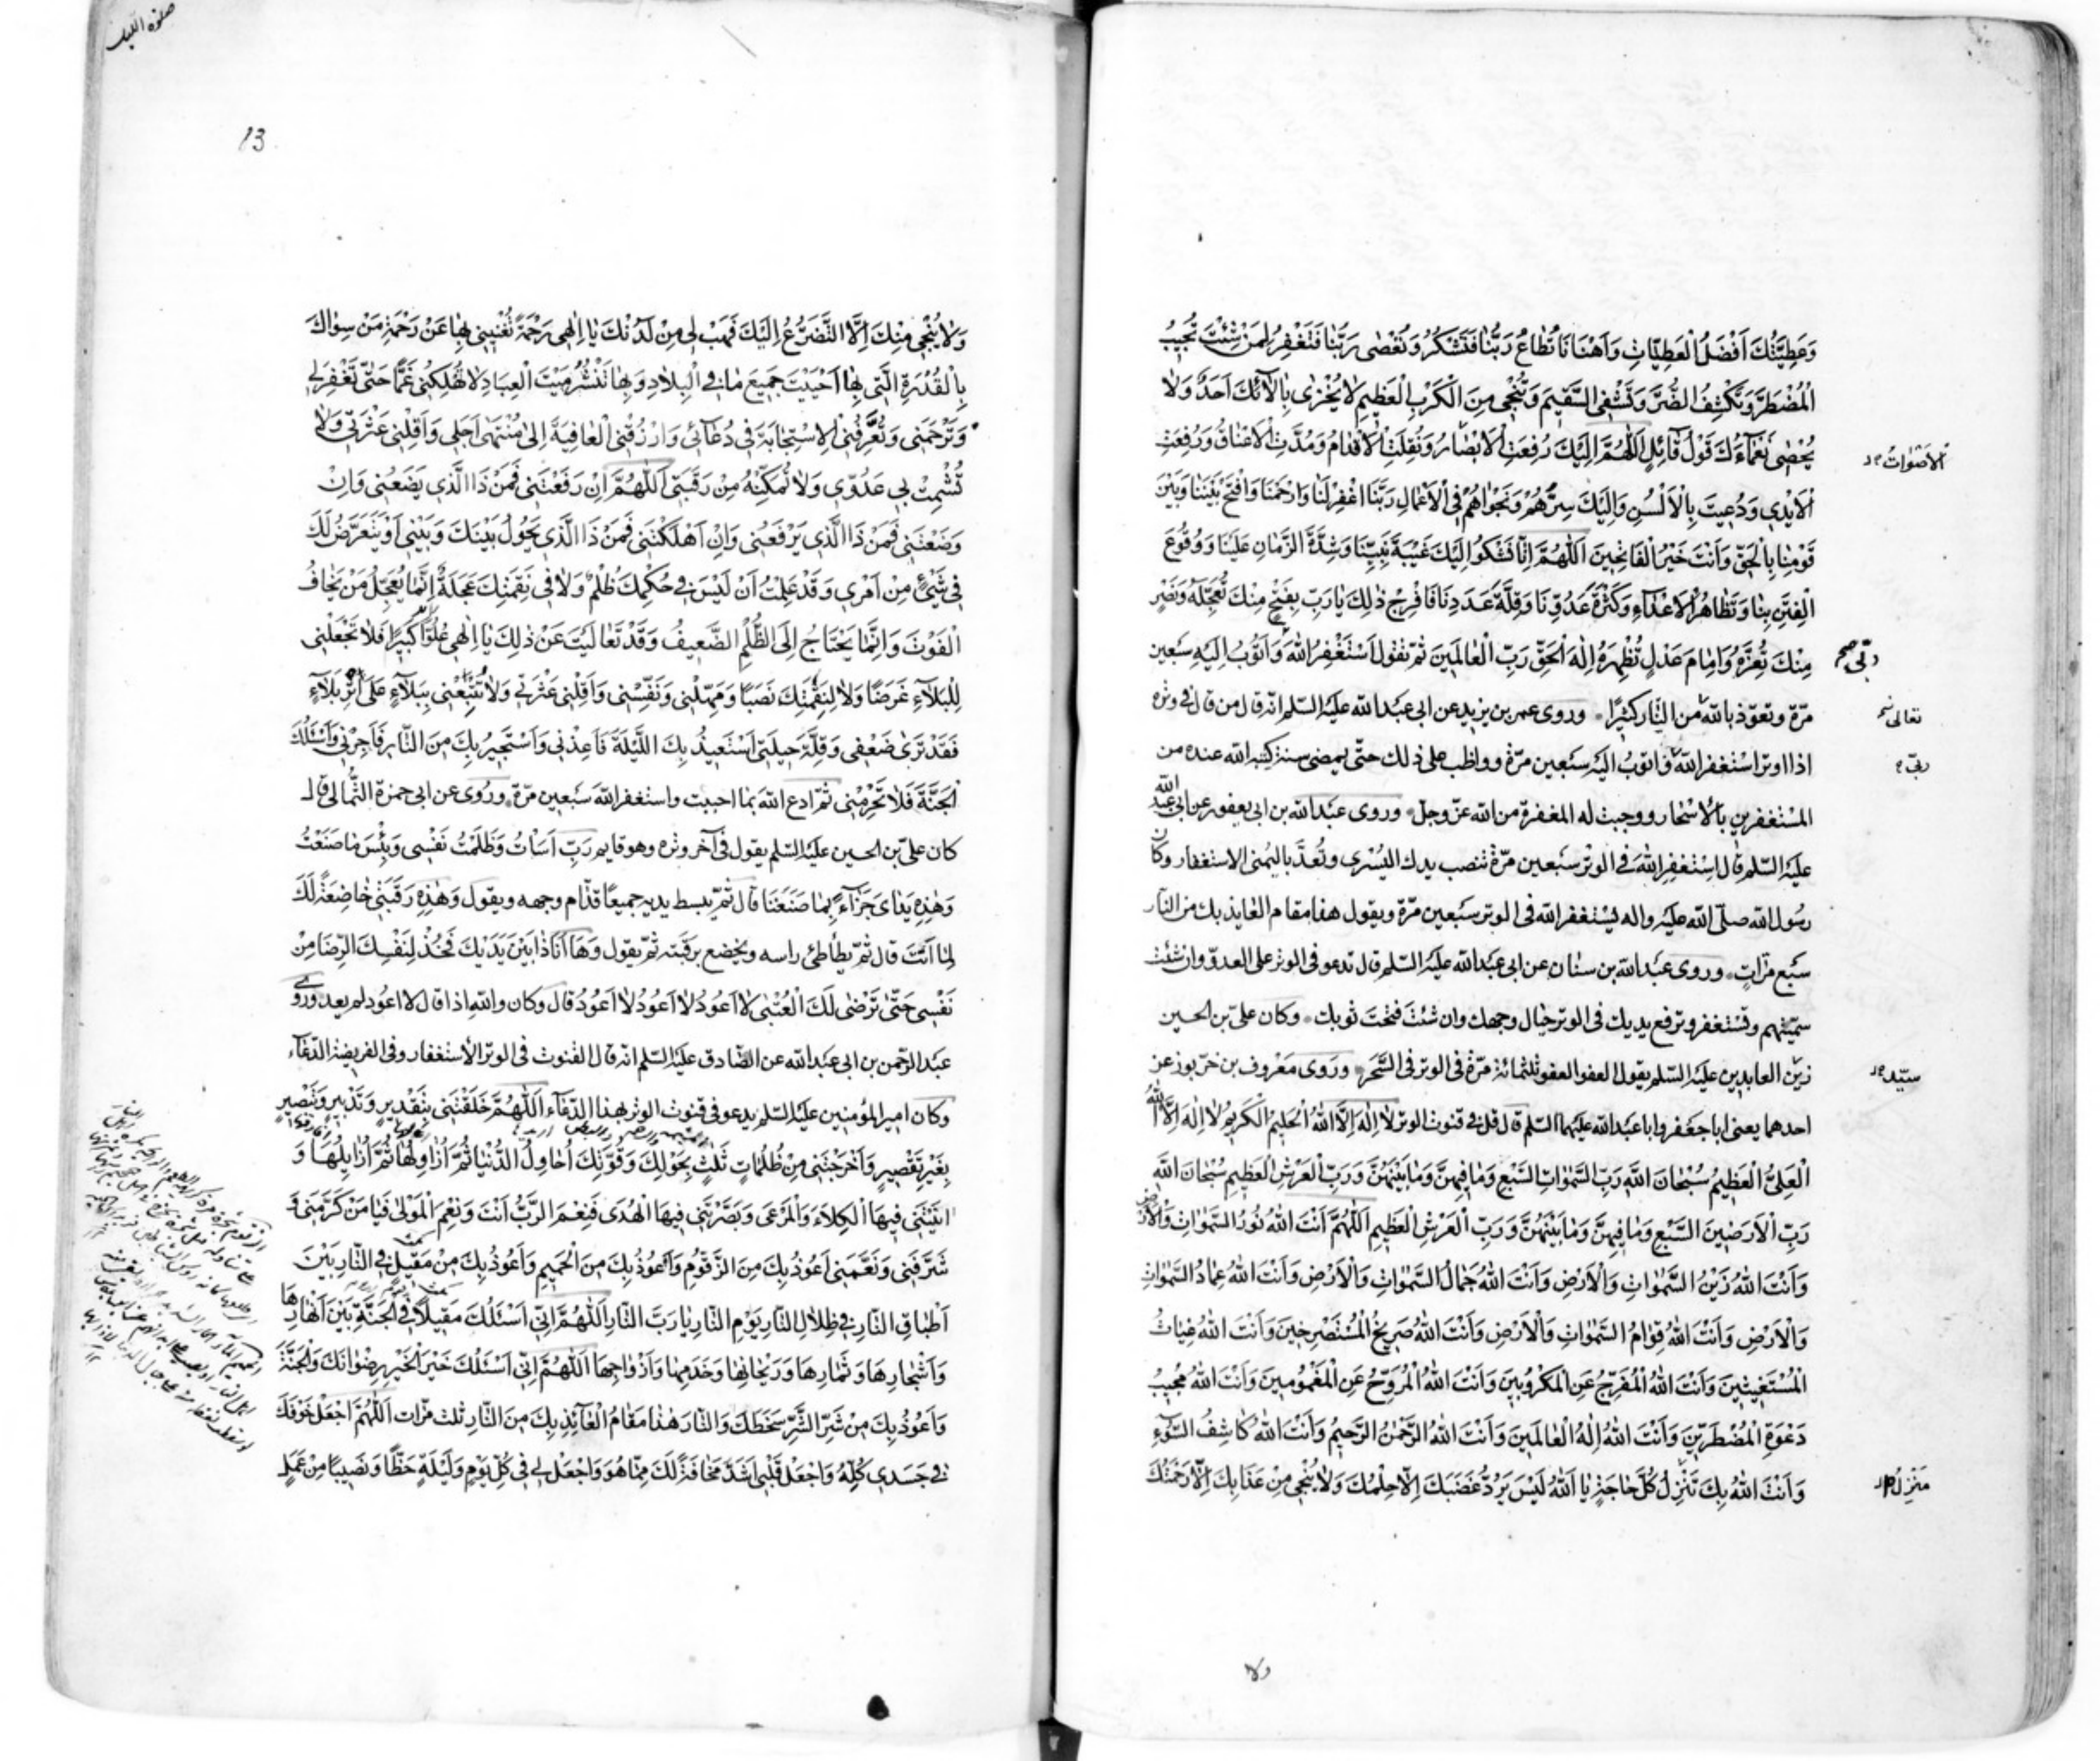 وَعَطِيَّتُكَ اَفْضَلُ الْعَطِيّاتِ وَاَهْنَاَهَا تُطاعُ رَبَّنا فَتَشْكُرُ وَتُعْصٰى رَبَّنا فَتَغْفِرُ لِمَنْ شِئْتَ تُجيبُ
الْمُضْطَرَّ وَتَكْشِفُ الضُّرَّ وَتَشْفِي السَّقيمَ وَتُنْجي مِنَ الْكَرْبِ الْعَظيمِ لا يُجْزى بِآلائِكَ اَحَدٌ وَلا
يُحْصي نَعْماءَكَ قَوْلُ قائِلٍ اَللّٰهُمَّ اِلَيْكَ رُفِعَتِ الْاَبْصارُ وَنُقِلَتِ الْاَقْدامُ وَمُدَّتِ الْاَعْناقُ وَرُفِعَتِ
الاَصْواتُ
الْاَيْدي وَدُعيتَ بِالْاَلْسُنِ وَاِلَيْكَ سِرُّهُمْ وَنَجْواهُمْ فِي الْاَعْمالِ رَبَّنَا اغْفِرْ لَنا وَارْحَمْنا وَافْتَحْ بَيْنَنا وَبَيْنَ
قَوْمِنا بِالْحَقِّ وَاَنْتَ خَيْرُ الْفاتِحينَ اَللّٰهُمَّ اِنّا نَشْكُوا اِلَيْكَ غَيْبَةَ نَبِيِّنا وَشِدَّةَ الزَّمانِ عَلَيْنا وَوُقُوعَ
الْفِتَنِ بِنا وَتَظاهُرَ الْاَعْداءِ وَكَثْرَةَ عَدُوِّنا وَقِلَّةَ عَدَدِنا فَافْرِجْ ذٰلِكَ يا رَبِّ بِفَتْحٍ مِنْكَ تُعَجِّلُهُ وَنَصْرٍ
مِنْكَ تُعِزُّهُ وَاِمامَ عَدْلٍ تُظْهِرُهُ اِلٰهَ الْحَقِّ رَبَّ الْعالَمينَ ثمّ تقول اَسْتَغْفِرُ اللهَ وَاَتُوبُ اِلَيْهِ سبعين
ربّي صح
مرّة وتعوّذ بالله من النّار كثيرًا وروى عمر بن يزيد عن ابي عبد الله عليه السّلم انّه قال من قال في وتره
تعالى
اذا اوتر استغفر الله واتوب اليه سبعين مرّة وواظب على ذلك حتّى يمضي سنة كتبه الله عنده من
ربّي
المستغفرين بالاسحار ووجبت له المغفرة من الله عزّ وجلّ وروى عبد الله بن ابي يعفور عن ابي عبد الله
عليه السّلم قال استغفر الله في الوتر سبعين مرّة تنصب يدك اليسرى وتعدّ باليمنى الاستغفار وكان
رسول الله صلّى الله عليه واله يستغفر الله في الوتر سبعين مرّة ويقول هذا مقام العايذ بك من النّار
سبع مرّات وروى عبد الله بن سنان عن ابي عبد الله عليه السّلم قال تدعو في الوتر على العدوّ وان شئت
سمّيتهم وتستغفر وترفع يديك في الوتر حيال وجهك وان شئت فتحت ثوبك وكان عليّ بن الحسين
زين العابدين عليه السّلم يقول العفو العفو ثلثمائة مرّة في الوتر في السَّحَر وروى معروف بن خرّبوذ عن
سيّد
احدهما يعنى ابا جعفر وابا عبد الله عليهما السّلم قال قل في قنوت الوتر لا اِلٰهَ اِلَّا اللهُ الْحَليمُ الْكَريمُ لا اِلٰهَ اِلَّا اللهُ
الْعَلِيُّ الْعَظيمُ سُبْحانَ اللهِ رَبِّ السَّمٰواتِ السَّبْعِ وَما فيهِنَّ وَما بَيْنَهُنَّ وَرَبِّ الْعَرْشِ الْعَظيمِ سُبْحانَ اللهِ
رَبِّ الْاَرَضينَ السَّبْعِ وَما فيهِنَّ وَما بَيْنَهُنَّ وَرَبِّ الْعَرْشِ الْعَظيمِ اَللّٰهُمَّ اَنْتَ اللهُ نُورُ السَّمٰواتِ وَالْاَرْضِ
وَاَنْتَ اللهُ زَيْنُ السَّمٰواتِ وَالْاَرْضِ وَاَنْتَ اللهُ جَمالُ السَّمٰواتِ وَالْاَرْضِ وَاَنْتَ اللهُ عِمادُ السَّمٰواتِ
وَالْاَرْضِ وَاَنْتَ اللهُ قِوامُ السَّمٰواتِ وَالْاَرْضِ وَاَنْتَ اللهُ صَريخُ الْمُسْتَصْرِخينَ وَاَنْتَ اللهُ غِياثُ
الْمُسْتَغيثينَ وَاَنْتَ اللهُ الْمُفَرِّجُ عَنِ الْمَكْرُوبينَ وَاَنْتَ اللهُ الْمُرَوِّحُ عَنِ الْمَغْمُومينَ وَاَنْتَ اللهُ مُجيبُ
دَعْوَةِ الْمُضْطَرّينَ وَاَنْتَ اللهُ اِلٰهُ الْعالَمينَ وَاَنْتَ اللهُ الرَّحْمٰنُ الرَّحيمُ وَاَنْتَ اللهُ كاشِفُ السُّوءِ
وَاَنْتَ اللهُ بِكَ تُنْزَلُ كُلُّ حاجَةٍ يا اَللهُ لَيْسَ يَرُدُّ غَضَبَكَ اِلّا حِلْمُكَ وَلا يُنْجي مِنْ عَذابِكَ اِلّا رَحْمَتُكَ
مَنْزِلُ
ولا
صلوة الليل
13
وَلا يُنْجي مِنْكَ اِلَّا التَّضَرُّعُ اِلَيْكَ فَهَبْ لي مِنْ لَدُنْكَ يا اِلٰهي رَحْمَةً تُغْنيني بِها عَنْ رَحْمَةِ مَنْ سِواكَ
بِالْقُدْرَةِ الَّتي بِها اَحْيَيْتَ جَميعَ ما فِي الْبِلادِ وَبِها تَنْشُرُ مَيْتَ الْعِبادِ لا تُهْلِكْني غَمًّا حَتّى تَغْفِرَ لي
وَتَرْحَمَني وَتُعَرِّفَنِي الْاِسْتِجابَةَ في دُعائي وَارْزُقْنِي الْعافِيَةَ اِلى مُنْتَهى اَجَلي وَاَقِلْني عَثْرَتي وَلا
تُشْمِتْ بي عَدُوّي وَلا تُمَكِّنْهُ مِنْ رَقَبَتي اَللّٰهُمَّ اِنْ رَفَعْتَني فَمَنْ ذَا الَّذي يَضَعُني وَاِنْ
وَضَعْتَني فَمَنْ ذَا الَّذي يَرْفَعُني وَاِنْ اَهْلَكْتَني فَمَنْ ذَا الَّذي يَحُولُ بَيْنَكَ وَبَيْني اَوْ يَتَعَرَّضُ لَكَ
في شَيْءٍ مِنْ اَمْري وَقَدْ عَلِمْتُ اَنْ لَيْسَ في حُكْمِكَ ظُلْمٌ وَلا في نَقِمَتِكَ عَجَلَةٌ اِنَّما يُعَجِّلُ مَنْ يَخافُ
الْفَوْتَ وَاِنَّما يَحْتاجُ اِلَى الظُّلْمِ الضَّعيفُ وَقَدْ تَعالَيْتَ عَنْ ذٰلِكَ يا اِلٰهي عُلُوًّا كَبيرًا فَلا تَجْعَلْني
لِلْبَلاءِ غَرَضًا وَلا لِنَقِمَتِكَ نَصَبًا وَمَهِّلْني وَنَفِّسْني وَاَقِلْني عَثْرَتي وَلا تُتْبِعْني بِبَلاءٍ عَلى اَثَرِ بَلاءٍ
فَقَدْ تَرى ضَعْفي وَقِلَّةَ حيلَتي اَسْتَعيذُ بِكَ اللَّيْلَةَ فَاَعِذْني وَاَسْتَجيرُ بِكَ مِنَ النّارِ فَاَجِرْني وَاَسْئَلُكَ
الْجَنَّةَ فَلا تَحْرِمْني ثمّ ادع الله بما احببت واستغفر الله سبعين مرّة وروى عن ابي حمزة الثّمالي قال
كان عليّ بن الحسين عليه السّلم يقول في آخر وتره وهو قايم رَبِّ اَسَأْتُ وَظَلَمْتُ نَفْسي وَبِئْسَ ما صَنَعْتُ
وَهٰذِهِ يَدايَ جَزاءً بِما صَنَعَتا قال ثمّ يبسط يديه جميعًا قدّام وجهه ويقول وَهٰذِهِ رَقَبَتي خاضِعَةً لَكَ
لِما اَتَتْ قال ثمّ يطأطئ راسه ويخضع برقبته ثمّ يقول وَها اَنَا ذا بَيْنَ يَدَيْكَ فَخُذْ لِنَفْسِكَ الرِّضا مِنْ
نَفْسي حَتّى تَرْضى لَكَ الْعُتْبى لا اَعُودُ لا اَعُودُ لا اَعُودُ قال وكان والله اذا قال لا اعود لم يعد وروى
عبد الرّحمن بن ابي عبد الله عن الصّادق عليه السّلم انّه قال القنوت في الوتر الاستغفار وفي الفريضة الدّعاء
وكان امير المؤمنين عليه السّلم يدعو في قنوت الوتر بهذا الدّعاء اَللّٰهُمَّ خَلَقْتَني بِتَقْديرٍ وَتَدْبيرٍ وَتَبْصيرٍ
بِغَيْرِ تَقْصيرٍ وَاَخْرَجْتَني مِنْ ظُلُماتٍ ثَلٰثٍ بِحَوْلِكَ وَقُوَّتِكَ اُحاوِلُ الدُّنْيا ثُمَّ اُزاوِلُها ثُمَّ اُزايِلُها وَ
اٰتَيْتَني فيهَا الْكِلاءَ وَالْمَرْعى وَبَصَّرْتَني فيهَا الْهُدى فَنِعْمَ الرَّبُّ اَنْتَ وَنِعْمَ الْمَوْلى فَيا مَنْ كَرَّمَني وَ
شَرَّفَني وَنَعَّمَني اَعُوذُ بِكَ مِنَ الزَّقُّومِ وَاَعُوذُ بِكَ مِنَ الْحَميمِ وَاَعُوذُ بِكَ مِنْ مَقيلٍ فِي النّارِ بَيْنَ
اَطْباقِ النّارِ في ظِلالِ النّارِ يَوْمَ النّارِ يا رَبَّ النّارِ اَللّٰهُمَّ اِنّي اَسْئَلُكَ مَقيلًا فِي الْجَنَّةِ بَيْنَ اَنْهارِها
وَاَشْجارِها وَثِمارِها وَرَيْحانِها وَخَدَمِها وَاَزْواجِها اَللّٰهُمَّ اِنّي اَسْئَلُكَ خَيْرَ الْخَيْرِ رِضْوانَكَ وَالْجَنَّةَ
وَاَعُوذُ بِكَ مِنْ شَرِّ الشَّرِّ سَخَطِكَ وَالنّارِ هٰذا مَقامُ الْعائِذِ بِكَ مِنَ النّارِ ثلث مرّات اَللّٰهُمَّ اجْعَلْ خَوْفَكَ
في جَسَدي كُلِّهِ وَاجْعَلْ قَلْبي اَشَدَّ مَخافَةً لَكَ مِمّا هُوَ وَاجْعَلْ لي في كُلِّ يَوْمٍ وَلَيْلَةٍ حَظًّا وَنَصيبًا مِنْ عَمَلٍ